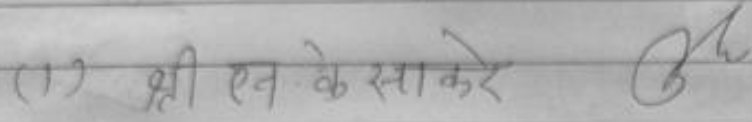 (1) श्री एन के साकरे